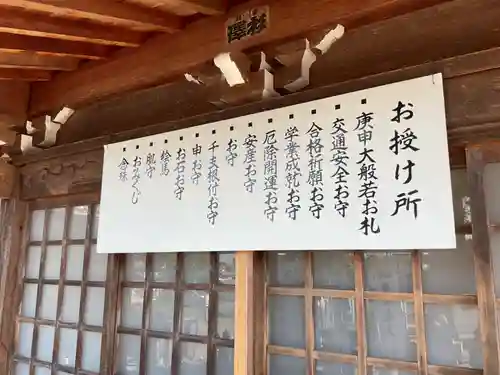 お授け所
庚申大般若お札
交通安全お守
合格祈願お守
学業成就お守
厄除開運お守
安産お守
お守
千支根付お守
申お守
お石お守
絵馬
肌守
おみくじ
念珠